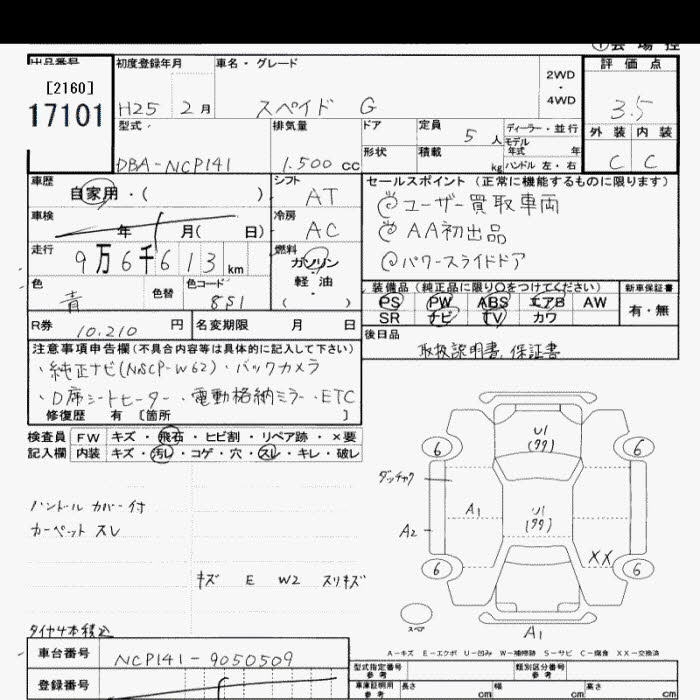 出品番号 初度登録年月 車名・グレード 2WD・4WD 評価点
[2160]
17101
H25 2月 スペイド G 3.5
型式 排気量 ドア 定員 5人 ディーラー・並行 外装 内装
モデル年式 年
DBA-NCP141 1.500cc 形状 積載 kg ハンドル 左・右 C C
車歴 自家用・( ) シフト AT セールスポイント (正常に機能するものに限ります)
ユーザー買取車両
車検 年 月( 日) 冷房 AC
AA初出品
走行 9万6千613km 燃料 ガソリン 軽油 ・( )
パワースライドドア
色 青 色替 色コード 851 装備品(純正品に限り○をつけてください) 新車保証書
PS PW ABS エアB AW 有・無
SR ナビ TV カワ
R券 10,210円 名変期限 月 日 後日品
取扱説明書、保証書
注意事項申告欄(不具合内容等は具体的に記入して下さい)
・純正ナビ(NSCP-W62)・バックカメラ
・D席シートヒーター・電動格納ミラー・ETC
修復歴 有 〔箇所 〕
検査員 FW キズ・飛石・ヒビ割・リペア跡・×要
記入欄 内装 キズ・汚レ・コゲ・穴・スレ・キレ・破レ
U1
6 6
ダッチャク
ハンドル カバー付 A1 U1
カーペット スレ A2
XX
6 6
キズ E W2 スリキズ
スペア
タイヤ4本積込 A1
A-キズ E-エクボ U-凹み W-補修跡 S-サビ C-腐食 XX-交換済
車台番号 NCP141-9050509
型式指定番号 参考 類別区分番号 参考
登録番号 車庫証明用 参考 長さ cm 幅 cm 高さ cm